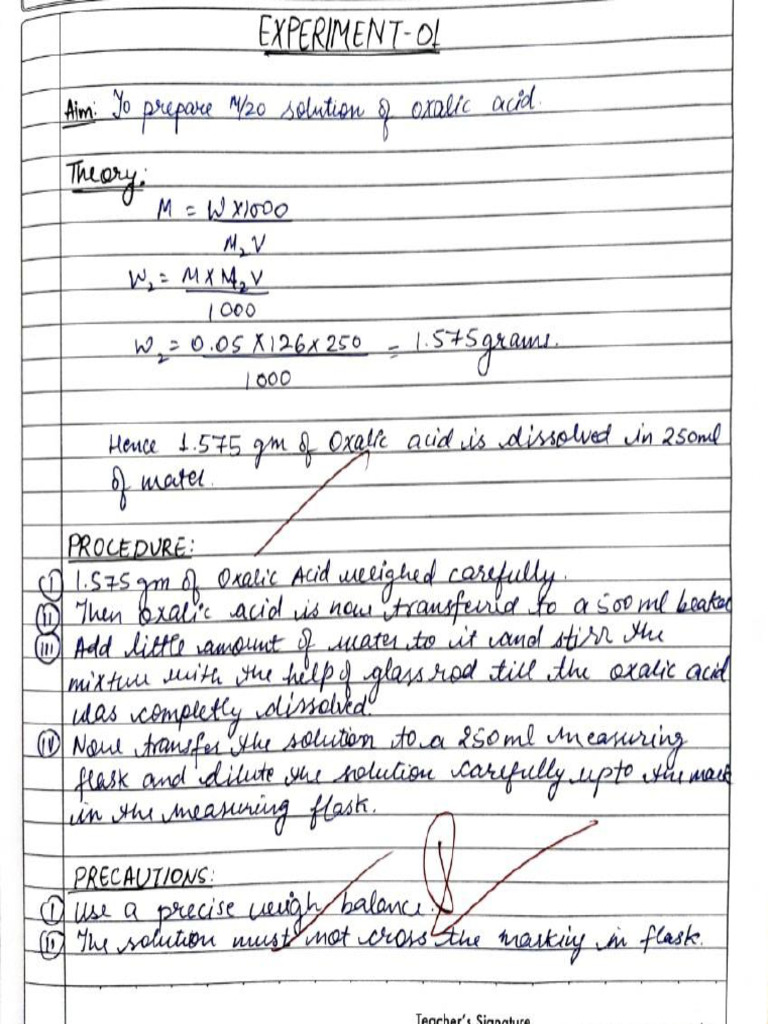 EXPERIMENT-01
Aim: To prepare M/20 solution of oxalic acid.
Theory:
M = W X1000
M₂V
W₂ = M X M₂V
1000
W₂ = 0.05 X 126 x 250 = 1.575 grams.
1000
Hence 1.575 gm of Oxalic acid is dissolved in 250ml
of water.
PROCEDURE:
(I) 1.575 gm of Oxalic Acid weighed carefully.
(II) Then oxalic acid is now transferrd to a 500 ml beaker
(III) Add little amount of water to it and stirr the
mixture with the help of glass rod till the oxalic acid
was completly dissolved.
(IV) Now transfer the solution to a 250 ml measuring
flask and dilute the solution carefully upto the mark
in the measuring flask.
PRECAUTIONS:
(I) Use a precise weigh balance.
(II) The solution must not cross the marking in flask.
Teacher's Signature